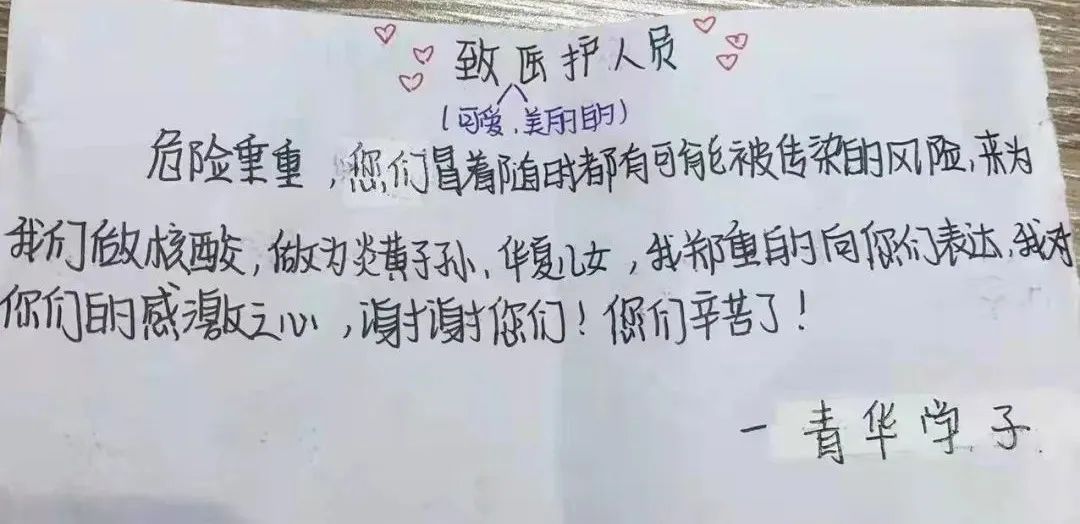 致医护人员
(可爱、美丽的)
危险重重，您们冒着随时都有可能被传染的风险，来为
我们做核酸，做为炎黄子孙、华夏儿女，我郑重的向你们表达，我对
你们的感激之心，谢谢您们！您们辛苦了！
一青华学子